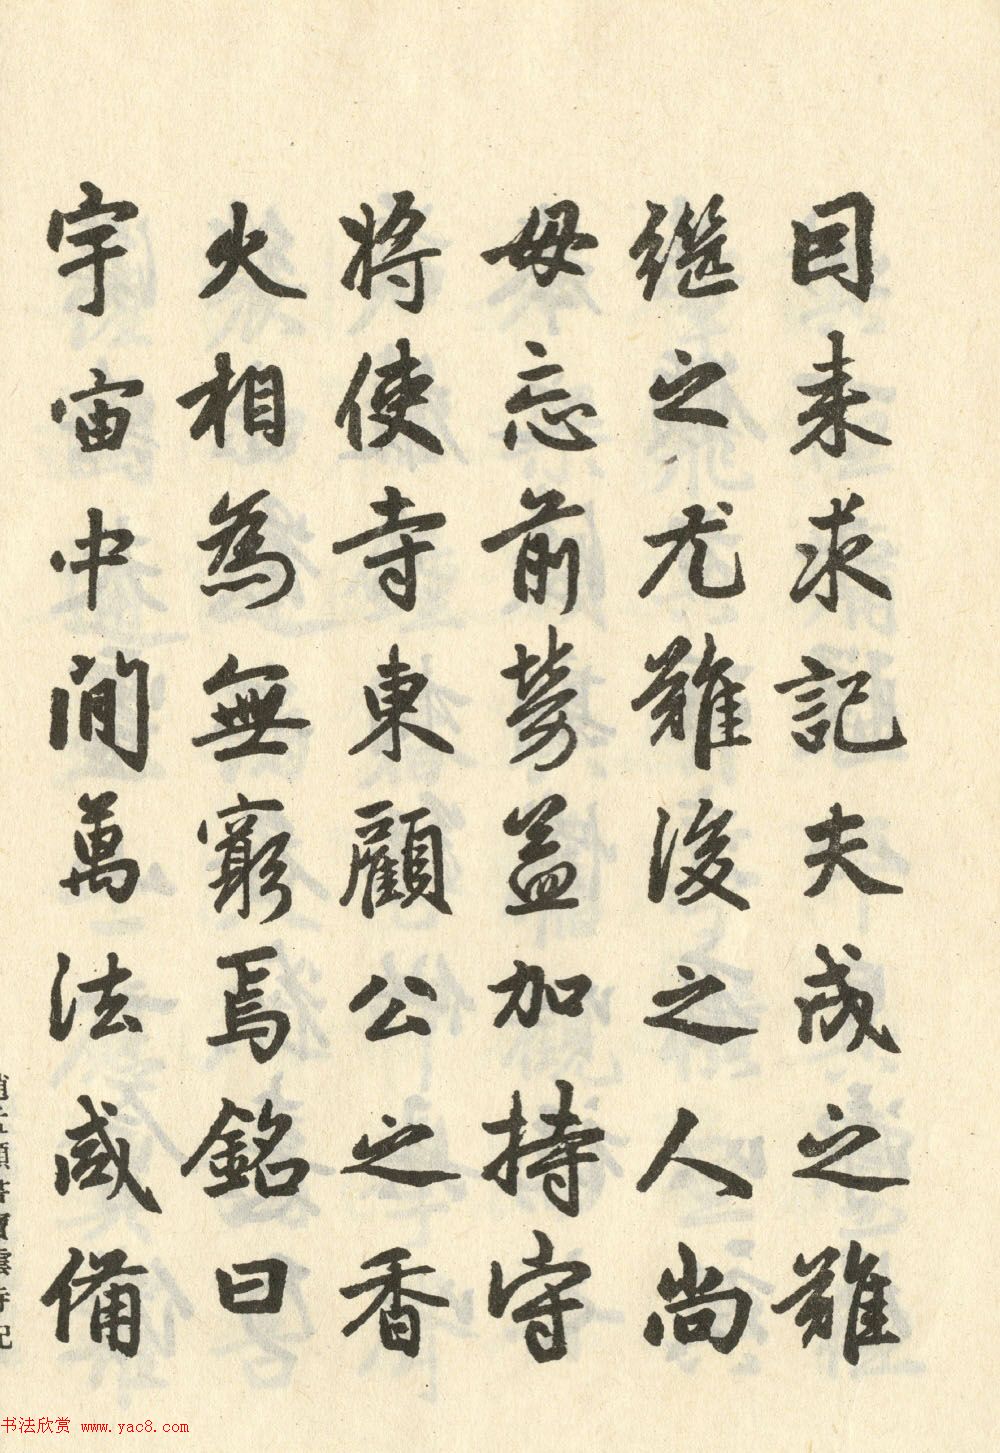 因来求記夫成之難
継之尤難後之人尚
毋忘前勞蓋加持守
將使寺東顧公之香
火相為無窮焉銘曰
宇宙中間萬法咸備
趙孟頫書寶雲寺記
书法欣赏 www.yac8.com